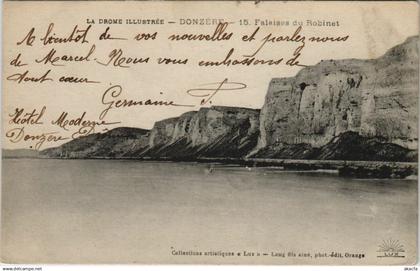 LA DROME ILLUSTRÉE — DONZÈRE. 15. Falaises du Robinet
A bientôt de vos nouvelles et parlez nous
de Marcel. Nous vous embrassons de
tout cœur
Germaine
Hôtel Moderne
Donzère
Collections artistiques « Lux » — Lang fils aîné, phot.-édit, Orange
LUX